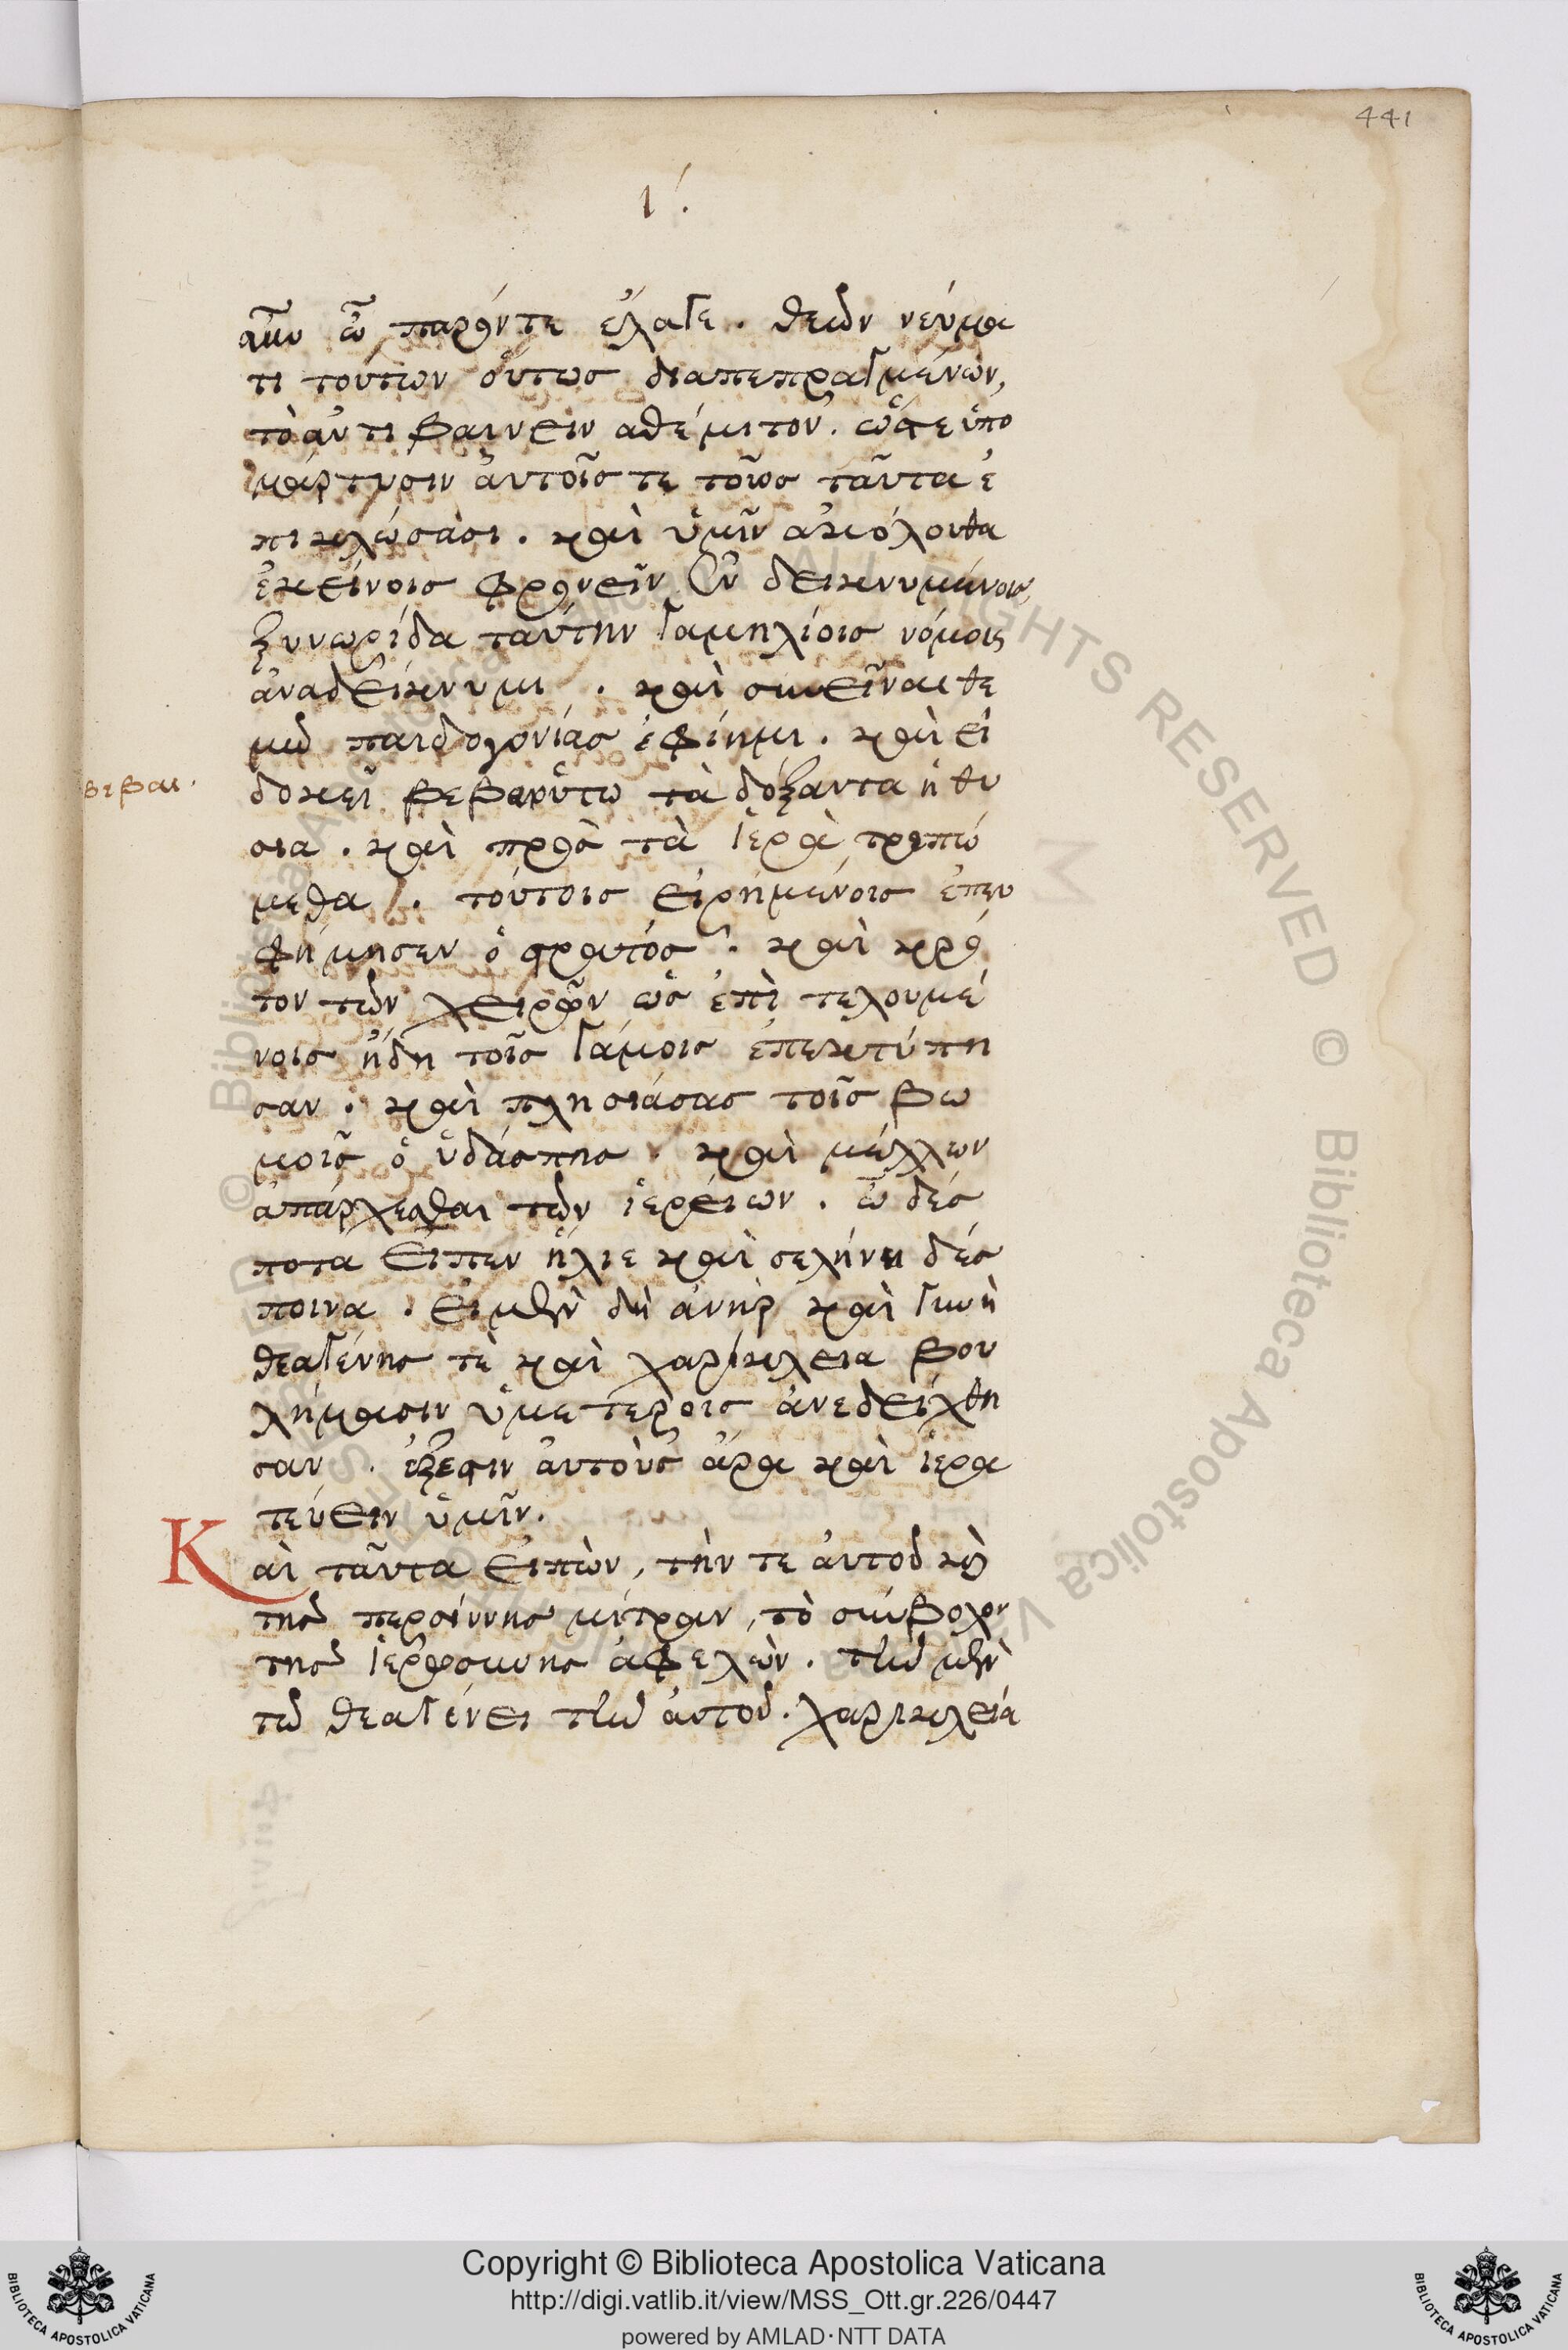 441
ι΄.
αμυ ὦ παρόντε ἔλαγε. θεῶν νεύμα
τι τούτων οὕτως διαπεπραγμένων,
τὸ ἀντιβαίνειν αθέμιτον. ὥστε ὑπὸ
μάρτυσιν ἀυτοῖς τε τοῖς ταῦτα ἐ
πικλώσασι. καὶ ὑμῖν ἀκόλουθα
ἐκείνοις φρονεῖν ἐνδεικνυμένοις,
ξυνωρίδα ταύτην γαμηλίοις νόμοις
ἀναδείκνυμι. καὶ συνεῖναι θε
σμῶ παιδογονίας ἐφίημι. καὶ εἰ
δοκεῖ βεβαιούτω τὰ δόξαντα ἡ θυ
βεβαι.
σια. καὶ πρὸς τὰ ἱερὰ τρεπώ
μεθα. τούτοις εἰρημένοις ἐπευ
φήμησεν ὁ στρατός. καὶ κρό
τον τῶν χειρῶν ὡς ἐπὶ τελουμέ
νοις ἤδη τοῖς γάμοις ἐπεκτύπη
σαν. καὶ πλησιάσας τοῖς βω
μοῖς ὁ ὑδάσπης. καὶ μέλλων
ἀπάρχεσθαι τῶν ἱερείων. ὦ δέσ
ποτα εἶπεν ἥλιε καὶ σελήνη δέσ
ποινα. εἰ μὲν δὴ ἀνὴρ καὶ γυνὴ
θεαγένης τὲ καὶ χαρίκλεια βου
λήμασιν ὑμετέροις ἀνεδείχθη
σαν. ἔξεστιν ἀυτοὺς ἄρα καὶ ἱερα
τεύειν ὑμῖν.
Καὶ ταῦτα εἰπὼν, τήν τε ἀυτοῦ καὶ
τῆς περσίννης μίτραν, τὸ σύμβολον
τῆς ἱερωσύνης ἀφελὼν. τὴν μὲν
τῶ θεαγένει τὴν ἀυτοῦ. χαρικλεία
Copyright © Biblioteca Apostolica Vaticana
http://digi.vatlib.it/view/MSS_Ott.gr.226/0447
powered by AMLAD·NTT DATA